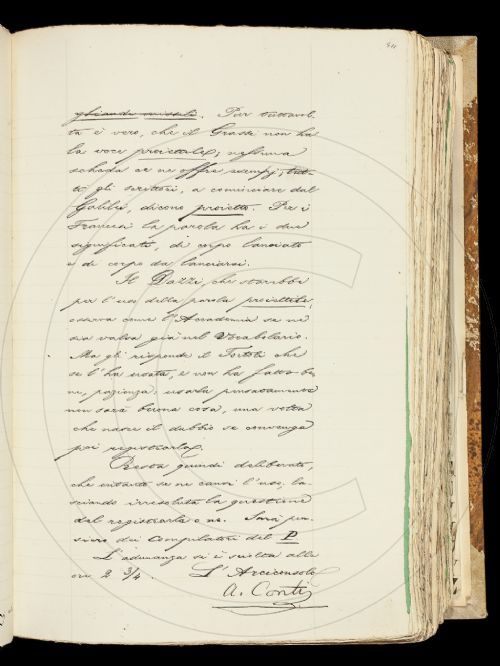 Pur tuttavol-
ta è vero, che il Grassi non ha
la voce proiettile, nessuna
scheda ce ne offre esempj, tut-
ti gli scrittori, a cominciare dal
Galilei, dicono proietto. Per i
Francesi la parola ha i due
significati, di corpo lanciato
e di corpo da lanciarsi.
Il Dazzi, che starebbe
per l'uso della parola proiettile,
osserva come l'Accademia se ne
sia valsa già nel Vocabolario.
Ma gli risponde il Tortoli che
se l'ha usata, e non ha fatto be-
ne, pazienza; usarla pensatamente
non sarà buona cosa, una volta
che nasce il dubbio se convenga
poi registrarla.
Resta quindi deliberato,
che intanto se ne cansi l'uso, la-
sciando irresoluta la questione
del registrarla o no. Sarà pen-
siero dei Compilatori del P
L'adunanza si è sciolta alle
ore 2 3/4. L'Arciconsolo
A. Conti